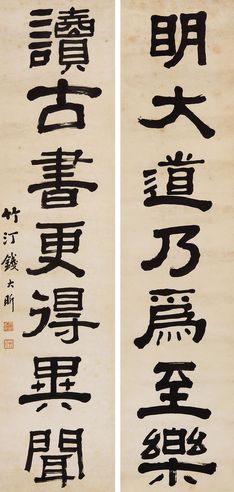 明大道乃爲至樂
讀古書更得異聞
竹汀錢大昕